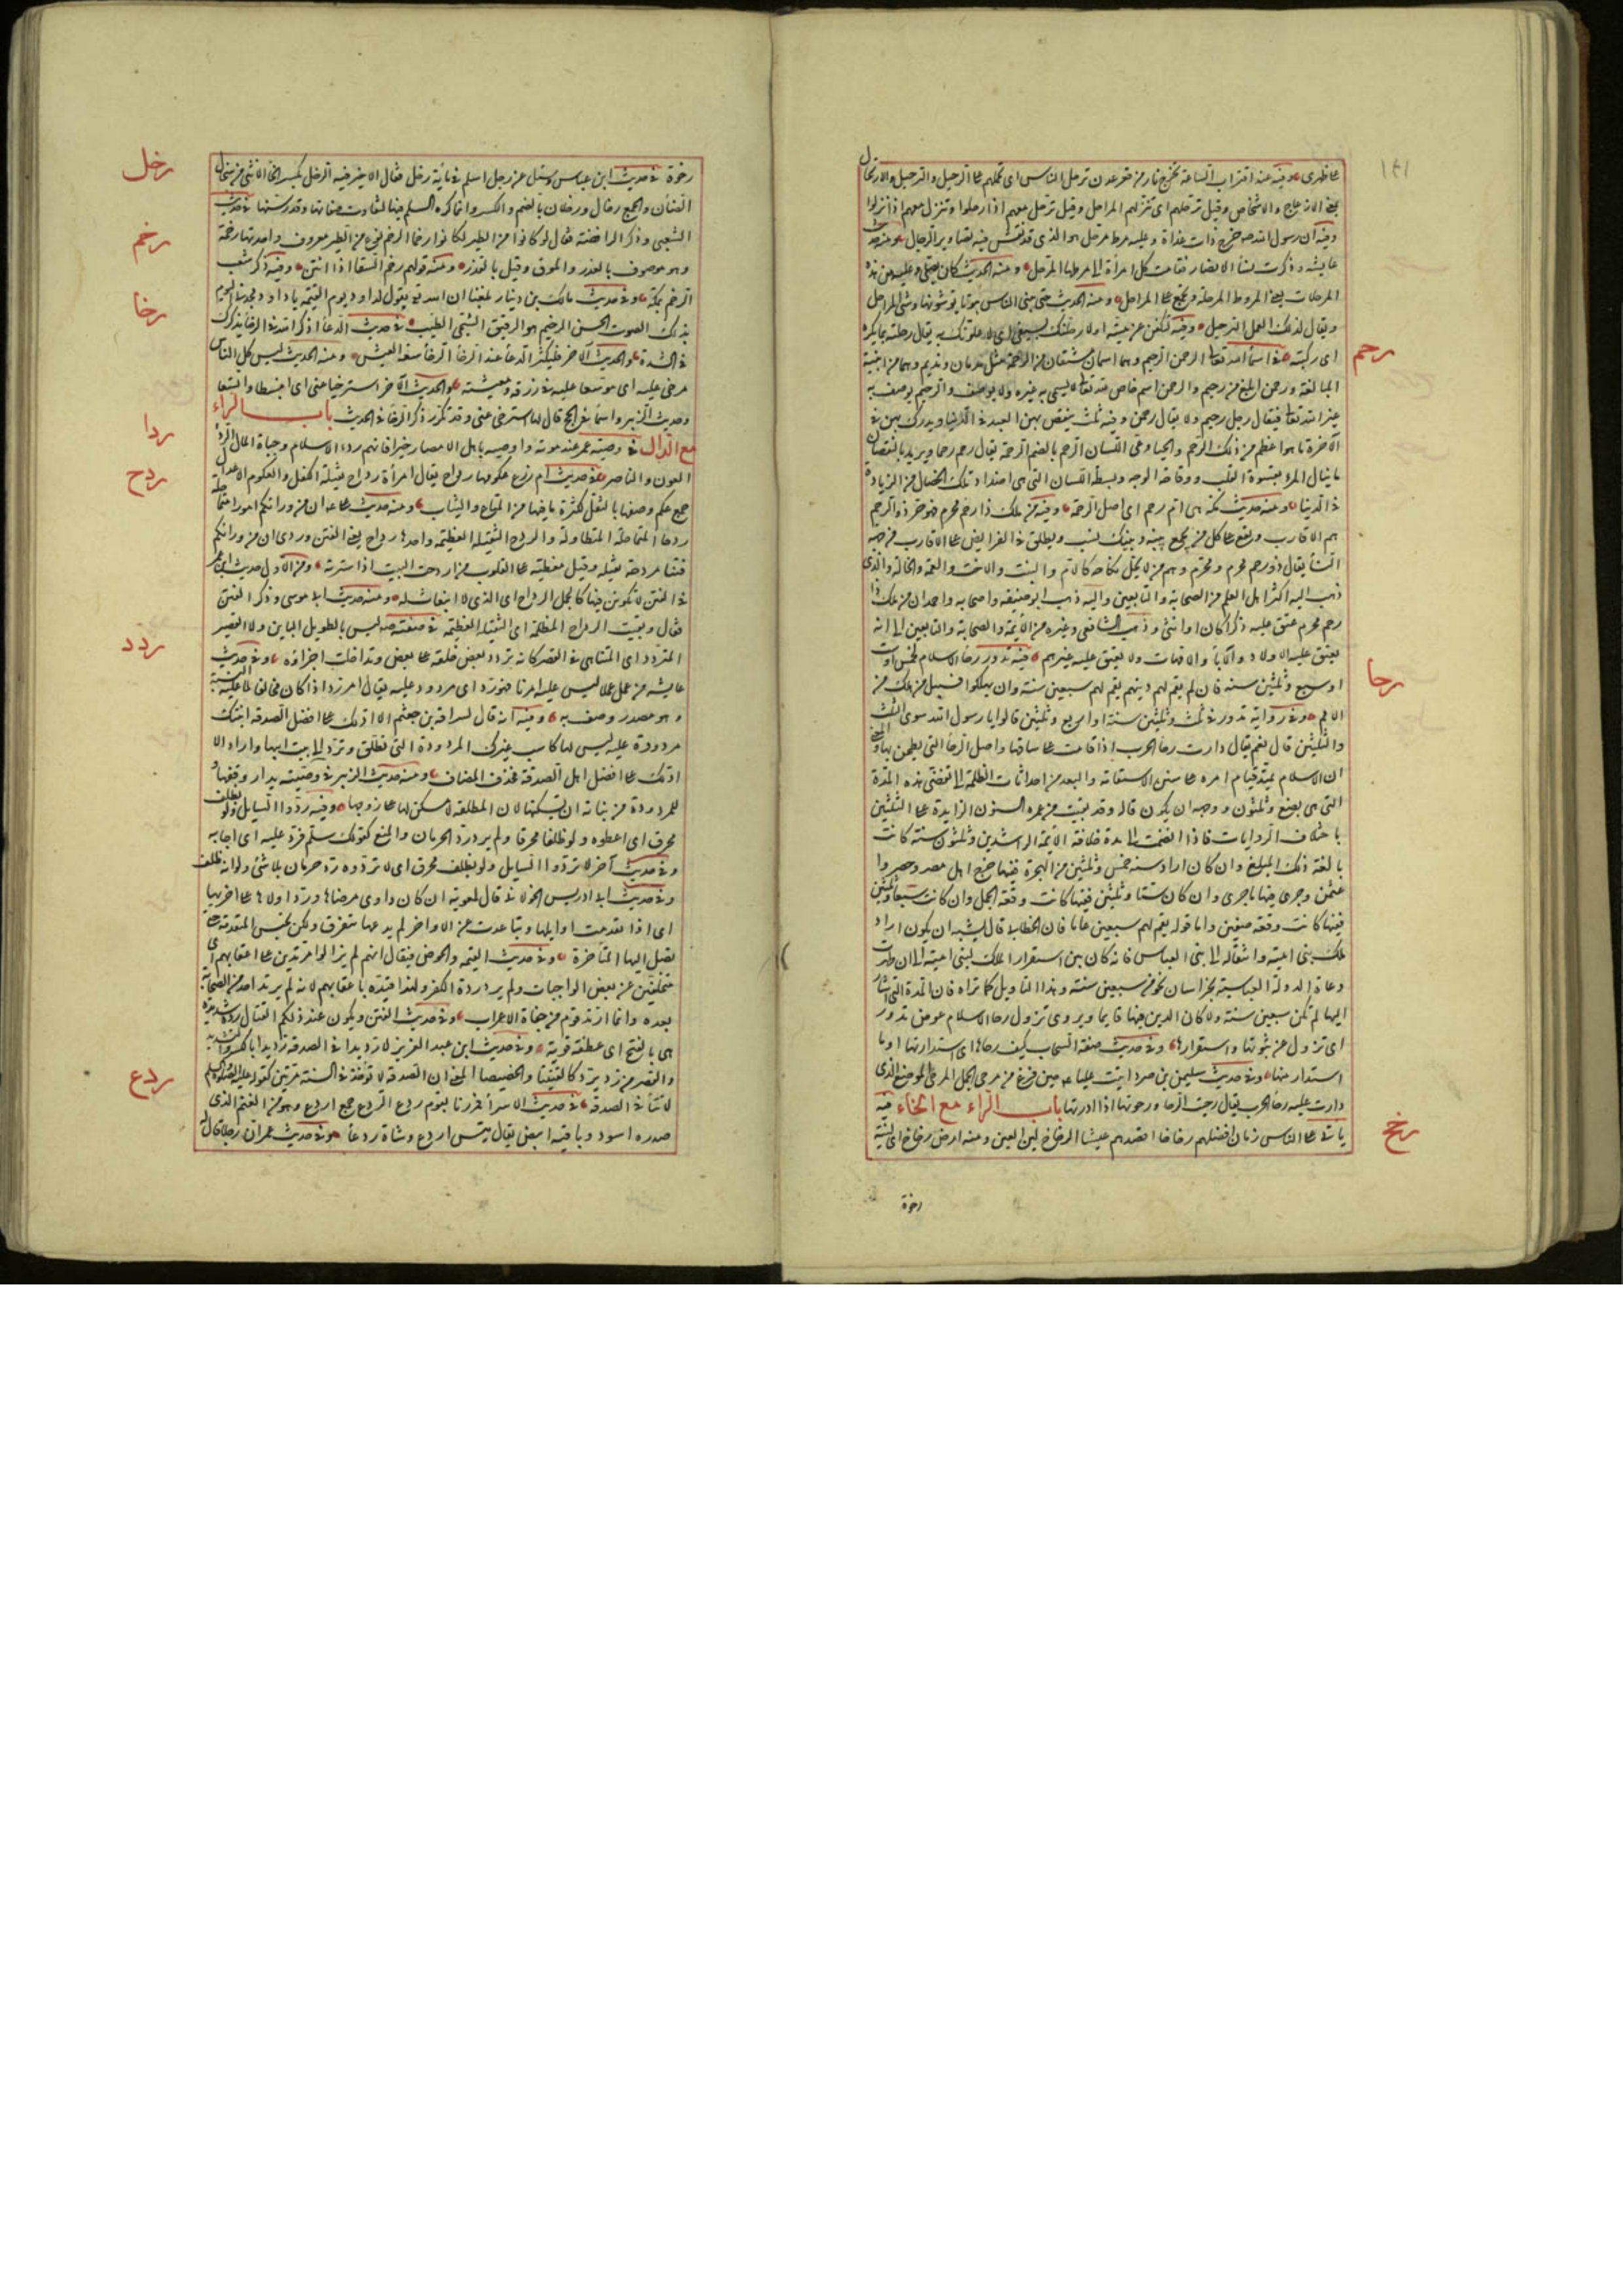 ١٤١
على ظهرى وفيه عند اقتراب الساعة تخرج نار من قعر عدن ترحل الناس اى تحملهم على الرحيل والترحيل والارحال
بمعنى الازعاج والاشخاص وقيل ترحلهم اى تنزلهم المراحل وقيل ترحل معهم اذا رحلوا وتنزل معهم اذا نزلوا
وفيه ان رسول الله صـ خرج ذات غداة وعليه مرط مرحل هو الذى قد نقش فيه تصاوير الرحال ومنه حديث
عايشة وذكرت نساء الانصار فقامت كل امرأة الى مرطها المرحل ومنه الحديث كان يصلى وعليه من هذه
المرحلات يعنى المروط المرحلة وتجمع على المراحل ومنه الحديث حتى يبنى الناس بيوتا يوشونها وشى المراحل
ويقال لذلك العمل الترحيل وفيه لتكفن عن شتمه او لارحلنك بسيفى اى لاعلونك به يقال رحلته بما يكره
اى ركبته
رحم
فى اسماء الله تعالى الرحمن الرحيم وهما اسمان مشتقان من الرحمة مثل ندمان ونديم وهما من ابنية
المبالغة ورحمن ابلغ من رحيم والرحمن اسم خاص لله تعالى لا يسمى به غيره ولا يوصف والرحيم يوصف به
غير الله تعالى فيقال رجل رحيم ولا يقال رحمن وفيه ثلث ينقص بهن العبد فى الدنيا ويدرك بهن فى
الآخرة ما هو اعظم من ذلك الرحم والحياء وعى اللسان الرحم بالضم الرحمة يقال رحم رحما ويريد بالنقصان
ما ينال المرء بقسوة القلب ووقاحة الوجه وبسطة اللسان التى هى اضداد تلك الخصال من الزيادة
فى الدنيا ومنه حديث مكة هى ام رحم اى اصل الرحمة وفيه من ملك ذا رحم محرم فهو حر ذو الرحم
هم الاقارب ويقع على كل من يجمع بينه وبينك نسب ويطلق فى الفرايض على الاقارب من جهة
النساء يقال ذو رحم محرم ومحرم وهم من لا يحل نكاحه كالام والبنت والاخت والعمة والخالة والذى
ذهب اليه اكثر اهل العلم من الصحابة والتابعين واليه ذهب ابو حنيفه واصحابه واحمد ان من ملك ذا
رحم محرم عتق عليه ذكرا كان او انثى وذهب الشافعى وغيره من الائمة والصحابة والتابعين الى انه
يعتق عليه الاولاد والآباء والامهات ولا يعتق عليه غيرهم
رحا
فيه تدور رحا الاسلام لخمس او ست
او سبع وثلثين سنه فان لم يقم لهم دينهم يقم لهم سبعين سنة وان يهلكوا فسبيل من هلك من
الامم وفى رواية تدور فى ثلث وثلثين سنة او اربع وثلثين قالوا يا رسول الله سوى الثلث
والثلثين قال نعم يقال دارت رحا الحرب اذا قامت على ساقها واصل الرحا التى يطحن بها والمعنى
ان الاسلام يمتد قيام امره على سنن الاستقامة والبعد من احداثات الظلمة الى تقضى هذه المدة
التى هى بضع وثلثون ووجهه ان يكون قاله وقد بقيت من عمره السنون الزايدة على الثلثين
باختلاف الروايات فاذا انضمت الى مدة خلافة الائمة الراشدين وثلثون سنة كانت
بالغة ذلك المبلغ وان كان اراد سنة خمس وثلثين من الهجرة ففيها خرج اهل مصر وحصروا
عثمن وجرى فيها ما جرى وان كان ستا وثلثين ففيها كانت وقعة الجمل وان كانت سبعا وثلثين
ففيها كانت وقعة صفين واما قوله يقم لهم سبعين عاما فان الخطابى قال يشبه ان يكون اراد
ملك بنى امية وانتقاله الى بنى العباس فانه كان بين استقرار الملك لبنى امية الى ان ظهرت
دعاة الدولة العباسية بخراسان نحو من سبعين سنة وهذا التاويل كما تراه فان المدة التى اشار
اليها لم تكن سبعين سنة ولا كان الدين فيها قايما ويروى تزول رحا الاسلام عوض تدور
اى تزول عن ثبوتها واستقرارها وفى حديث صفة السحاب كيف رحاها اى استدارتها او ما
استدار منها وفى حديث سليمن بن صرد اتيت عليا عـ حين فرغ من مرحى الجمل المرحى الموضع الذى
دارت عليه رحا الحرب يقال رحيت الرحا ورحوتها اذا ادرتها باب الراء مع الخاء
رخخ
فيه
ياتى على الناس زمان افضلهم رخاخا اقصدهم عيشا الرخاخ لين العيش ومنه ارض رخاخ اى لينة
رخوة
رخل
رخوة فى حديث ابن عباس وسئل عن رجل اسلم فى ماية رخل فقال لا خير فيه الرخل بكسر الخاء الانثى من سخال
الضأن والجمع رخال ورخلان بالضم والكسر وانما كره السلم فيها لتفاوت صفاتها وقدر سنها
رخم
فى حديث
الشعبى وذكر الرافضة فقال لو كانوا من الطير لكانوا رخما الرخم نوع من الطير معروف واحدتها رخمة
وهو موصوف بالغدر والموق وقيل بالقذر ومنه قولهم رخم السقاء اذا انتن وفيه ذكر شعب
الرخم بمكة وفى حديث مالك بن دينار بلغنا ان الله تع يقول لداود يوم القيمة يا داود مجدنى اليوم
بذلك الصوت الحسن الرخيم هو الرقيق الشجى الطيب
رخا
فى حديث الدعاء اذكر الله فى الرخا يذكرك
فى الشدة والحديث الآخر فليكثر الدعاء عند الرخاء الرخاء سعة العيش ومنه الحديث ليس كل الناس
مرخى عليه اى موسعا عليه فى رزقه ومعيشته والحديث الآخر استرخيا عنى اى انبسطا واتسعا
وحديث الزبير واسماء فى الحج قال لها استرخى عنى وقد تكرر ذكر الرخاء فى الحديث باب الراء
مع الدال
ردا
فى وصية عمر عند موته واوصيه باهل الامصار خيرا فانهم ردء الاسلام وجباة المال الردء
العون والناصر
ردح
فى حديث ام زرع عكومها رداح يقال امرأة رداح ثقيلة الكفل والعكوم الاعدال
جمع عكم وصفها بالثقل لكثرة ما فيها من المتاع والثياب ومنه حديث على ان من ورائكم امورا متماحلة
ردحا المتماحلة المتطاولة والردح الثقيلة العظيمة واحدها رداح يعنى الفتن وروى ان من ورائكم
فتنا مردحة اى مثقلة وقيل مغطية على القلوب من اردحت البيت اذا سترته ومن الاول حديث ابن عمر
فى الفتن لاكونن فيها كالجمل الرداح اى الذى لا انبعاث له ومنه حديث ابى موسى وذكر الفتن
فقال وبقيت الرداح المظلمة اى الثقيلة العظيمة
ردد
فى صفته صـ ليس بالطويل الباين ولا القصير
المتردد اى المتناهى فى القصر كانه تردد بعض خلقه على بعض وتداخلت اجزاؤه وفى حديث
عايشه من عمل عملا ليس عليه امرنا فهو رد اى مردود عليه يقال امر رد اذا كان مخالفا لما عليه السنة
وهو مصدر وصف به وفيه انه قال لسراقة بن جعشم الا ادلك على افضل الصدقة ابنتك
مردودة عليه ليس لها كاسب غيرك المردودة التى تطلق وترد الى بيت ابيها واراد الا
ادلك على افضل اهل الصدقة فحذف المضاف ومنه حديث الزبير فى وصيته بدار وقفها و
للمردودة من بناته ان تسكنها لان المطلقة لا سكن لها على زوجها وفيه ردوا السايل ولو بظلف
محرق اى اعطوه ولو ظلفا محرقا ولم يرد رد الحرمان والمنع كقولك سلم فرد عليه اى اجابه
وفى حديث آخر لا تردوا السايل ولو بظلف محرق اى لا تردوه رد حرمان بلا شىء ولو انه ظلف
وفى حديث ابى ادريس الخولانى قال لمعوية ان كان داوى مرضاها ورد اولاها على اخريها
اى اذا تقدمت اوايلها وتباعدت عن الاواخر لم يدعها تتفرق ولكن يحبس المتقدمة حتى
تصل اليها المتاخرة وفى حديث القيمة والحوض فيقال انهم لم يزالوا مرتدين على اعقابهم اى
متخلفين عن بعض الواجبات ولم يرد ردة الكفر ولهذا قيده باعقابهم لانه لم يرتد احد من الصحابة
بعده وانما ارتد قوم من جفاة الاعراب وفى حديث الفتن ويكون عند ذلكم القتال ردة شديدة
هى بالفتح اى عطفة قوية وفى حديث ابن عبد العزيز لا رديدا فى الصدقة رديدا بالكسر والتشديد
والقصر من رد يرد كالقتيتا والخصيصا المعنى ان الصدقة لا تؤخذ فى السنة مرتين كقوله عليه السلام
لا ثنا فى الصدقة
ردع
فى حديث الاسراء فمررنا بقوم ردع الردع جمع اردع وهو من الغنم الذى
صدره اسود وباقيه ابيض يقال تيس اردع وشاة ردعاء وفى حديث عمر ان رجلا قال له